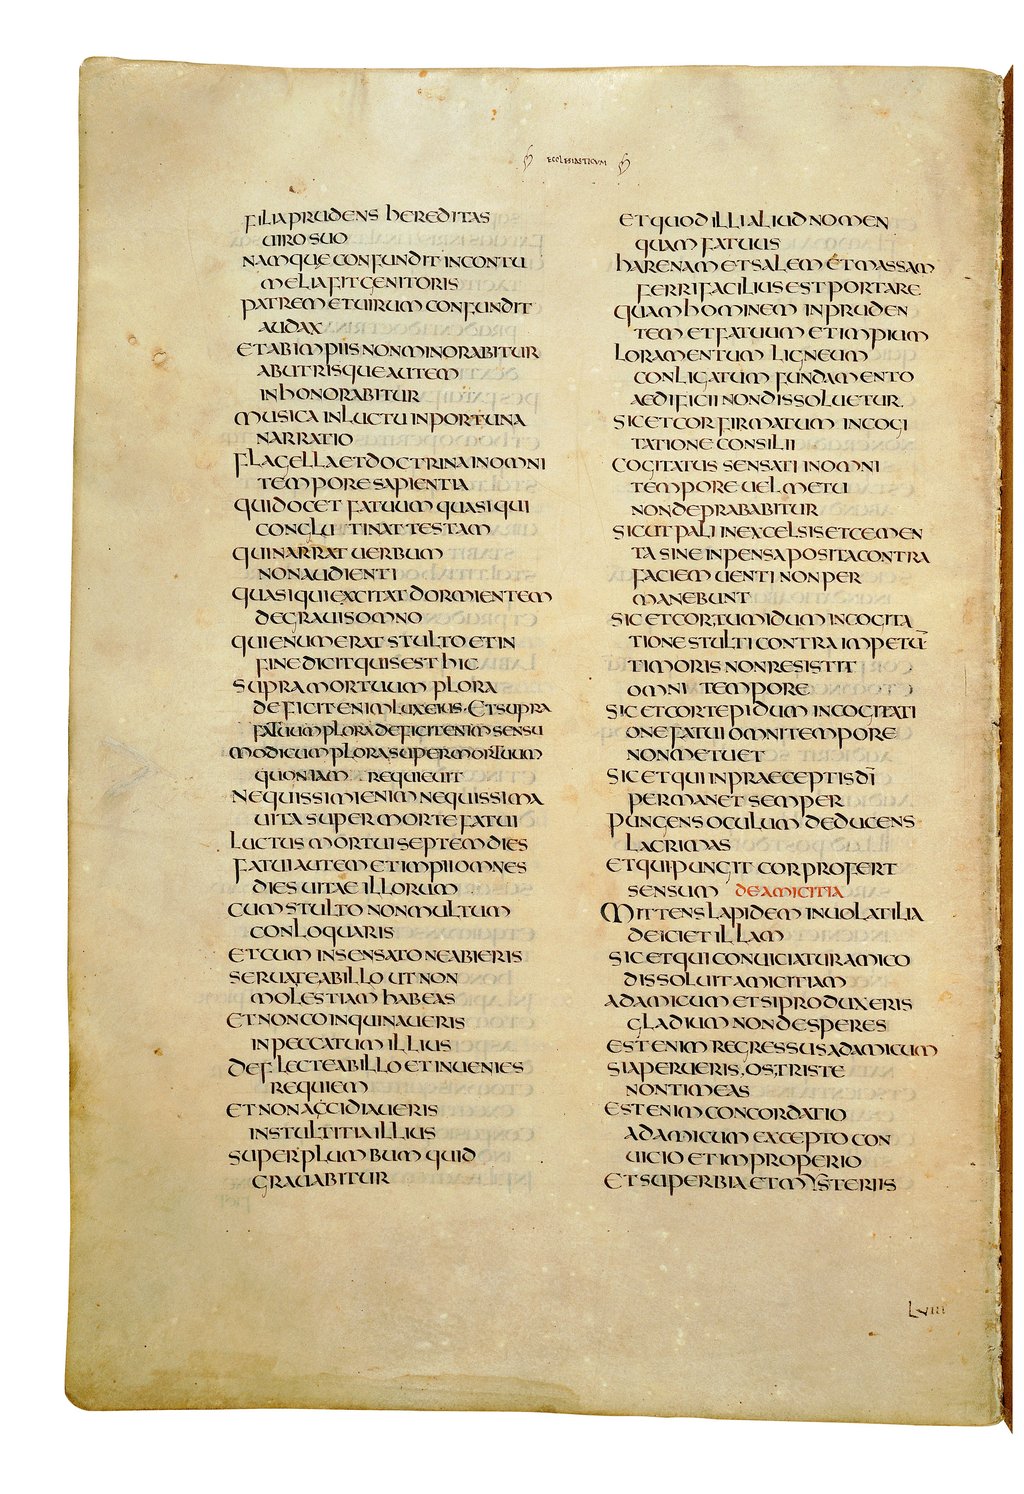 ECCLESIASTICUM
FILIA PRUDENS HEREDITAS
UIRO SUO
NAM QUE CONFUNDIT IN CONTU
MELIA FIT GENITORIS
PATREM ET UIRUM CONFUNDIT
AUDAX
ET AB IMPIIS NON MINORABITUR
AB UTRISQUE AUTEM
INHONORABITUR
MUSICA IN LUCTU INPORTUNA
NARRATIO
FLAGELLA ET DOCTRINA IN OMNI
TEMPORE SAPIENTIA
QUI DOCET FATUUM QUASI QUI
CONGLUTINAT TESTAM
QUI NARRAT UERBUM
NON AUDIENTI
QUASI QUI EXCITAT DORMIENTEM
DE GRAUI SOMNO
QUI ENUMERAT STULTO ET IN
FINE DICIT QUIS EST HIC
SUPRA MORTUUM PLORA
DEFICIT ENIM LUX EIUS. ET SUPRA
FATUUM PLORA DEFICIT ENIM SENSU
MODICUM PLORA SUPER MORTUUM
QUONIAM REQUIEUIT
NEQUISSIMI ENIM NEQUISSIMA
UITA SUPER MORTE FATUI
LUCTUS MORTUI SEPTEM DIES
FATUI AUTEM ET IMPII OMNES
DIES UITAE ILLORUM
CUM STULTO NON MULTUM
CONLOQUARIS
ET CUM INSENSATO NE ABIERIS
SERUA TE AB ILLO UT NON
MOLESTIAM HABEAS
ET NON COINQUINAUERIS
IN PECCATUM ILLIUS
DEFLECTE AB ILLO ET INUENIES
REQUIEM
ET NON ACCIDIAUERIS
IN STULTITIA ILLIUS
SUPER PLUMBUM QUID
GRAUABITUR
ET QUOD ILLI ALIUD NOMEN
QUAM FATUUS
HARENAM ET SALEM ET MASSAM
FERRI FACILIUS EST PORTARE
QUAM HOMINEM INPRUDEN
TEM ET FATUUM ET IMPIUM
LORAMENTUM LIGNEUM
CONLIGATUM FUNDAMENTO
AEDIFICII NON DISSOLUETUR
SIC ET COR FIRMATUM IN COGI
TATIONE CONSILII
COGITATUS SENSATI IN OMNI
TEMPORE UEL METU
NON DEPRABABITUR
SICUT PALI IN EXCELSIS ET CEMEN
TA SINE INPENSA POSITA CONTRA
FACIEM UENTI NON PER
MANEBUNT
SIC ET COR TUMIDUM IN COGITA
TIONE STULTI CONTRA IMPETŪ
TIMORIS NON RESISTIT
OMNI TEMPORE
SIC ET COR TEPIDUM IN COGITATI
ONE FATUI OMNI TEMPORE
NON METUET
SIC ET QUI IN PRAECEPTIS DĪ
PERMANET SEMPER
PUNGENS OCULUM DEDUCENS
LACRIMAS
ET QUI PUNGIT COR PROFERT
SENSUM DE AMICITIA
MITTENS LAPIDEM IN UOLATILIA
DEICIET ILLAM
SIC ET QUI CONUICIATUR AMICO
DISSOLUIT AMICITIAM
AD AMICUM ETSI PRODUXERIS
GLADIUM NON DESPERES
EST ENIM REGRESSUS AD AMICUM
SI APERUERIS OS TRISTE
NON TIMEAS
EST ENIM CONCORDATIO
AD AMICUM EXCEPTO CON
UICIO ET IMPROPERIO
ET SUPERBIA ET MYSTERIIS
LVIII